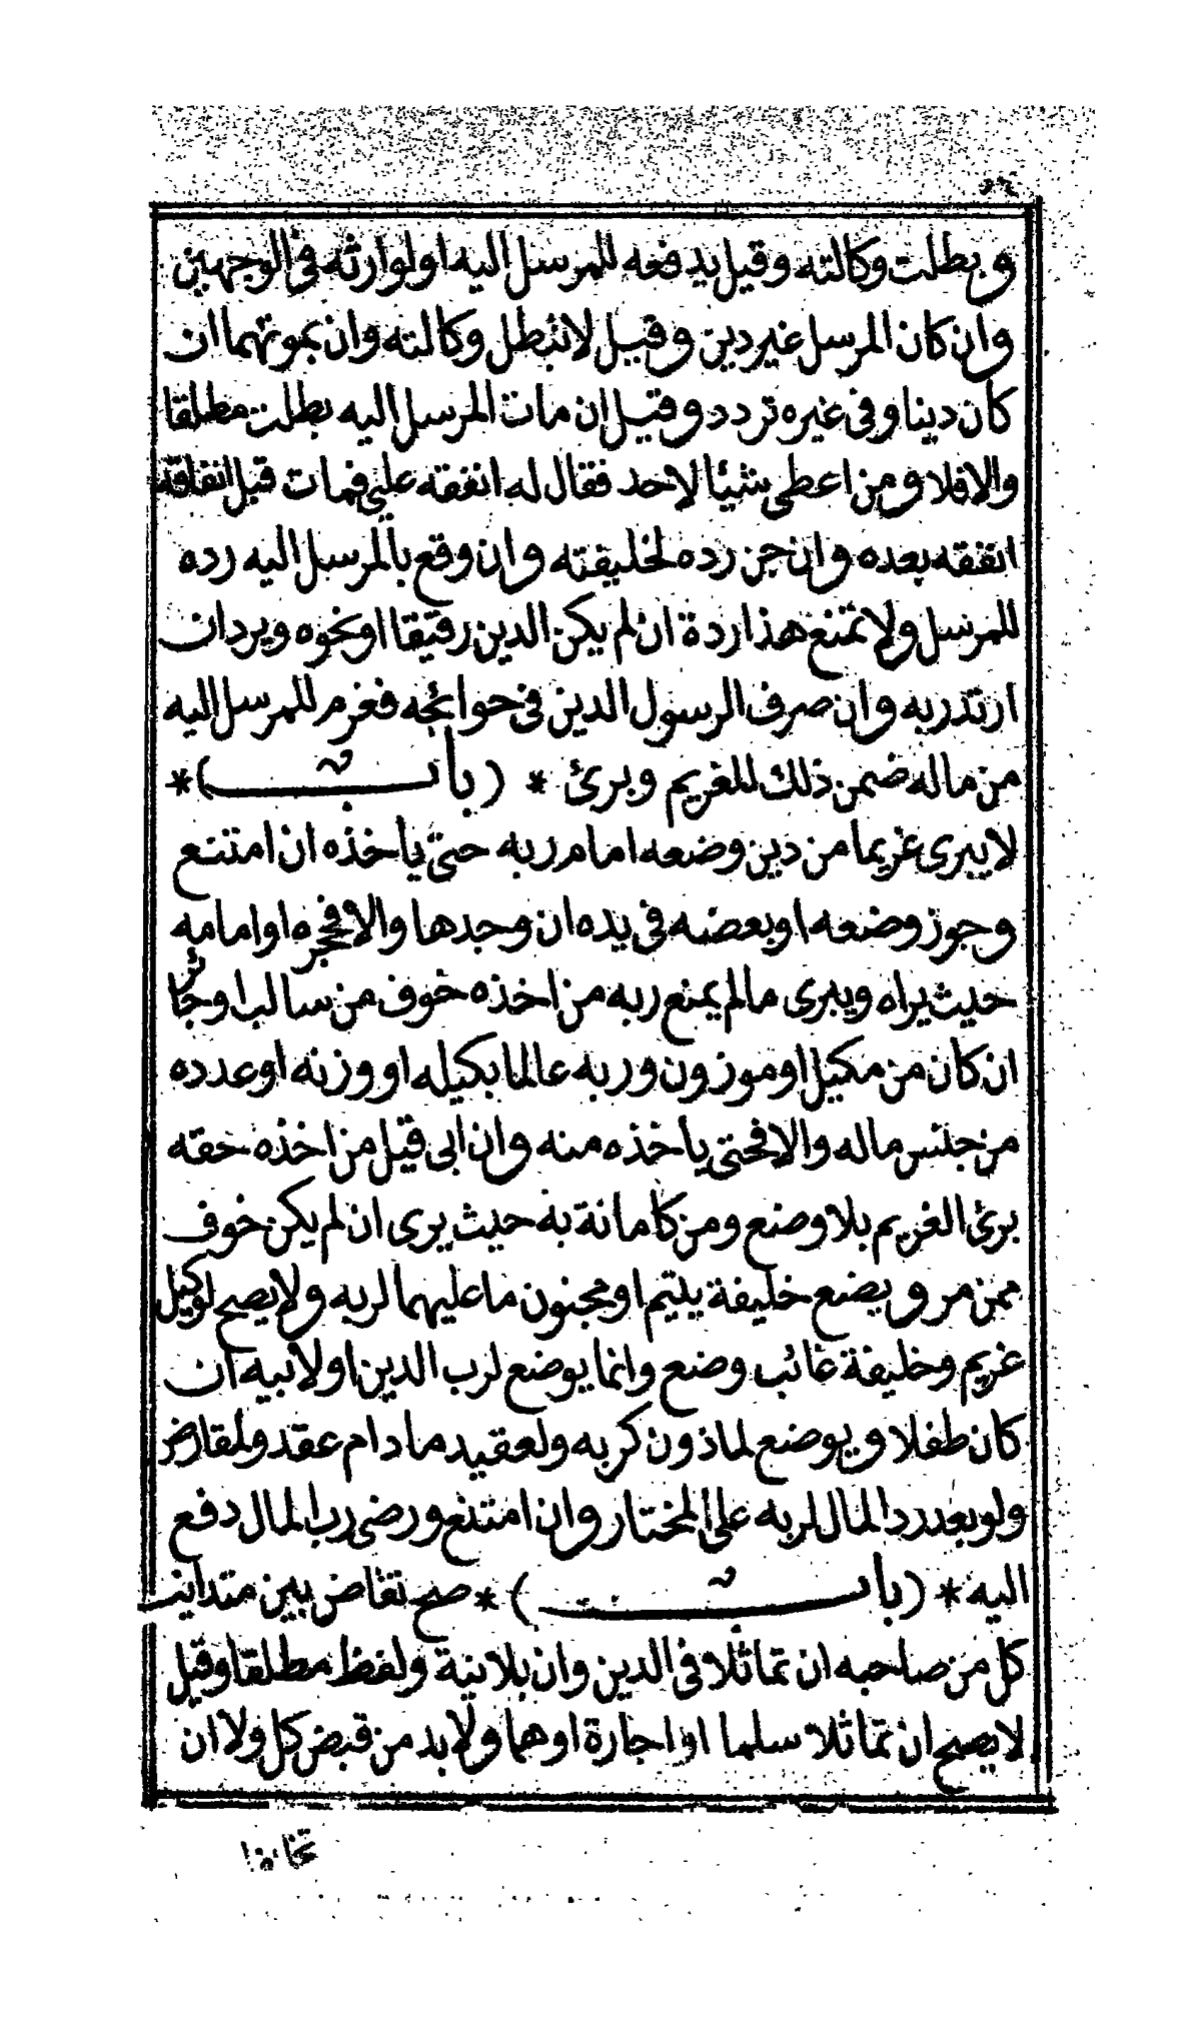 وبطلت وكالته وقيل يدفعه للمرسل اليه اولوارثه في الوجهين
وان كان المرسل غير دين وقيل لا تبطل وكالته وان بموتهما ان
كان دينا وفى غيره تردد وقيل ان مات المرسل اليه بطلت مطلقا
والا فلا ومن اعطى شيئا لاحد فقال له انفقه علي فمات قبل انفاقه
انفقه بعده وان جن رده لخليفته وان وقع بالمرسل اليه رده
للمرسل ولا تمنع هذا ردة ان لم يكن الدين رقيقا او نحوه ويرد ان
ارتد ربه وان صرف الرسول الدين في حوائجه فغرم للمرسل اليه
من ماله ضمن ذلك للغريم وبرئ * (باب) *
لا يبرى غريما من دين وضعه امام ربه حتى ياخذه ان امتنع
وجوز وضعه او بعضه في يده ان وجدها والا فحجره او امامه
حيث يراه ويبرى ما لم يمنع ربه من اخذه خوف من سالب او جائر
ان كان من مكيل او موزون وربه عالما بكيله او وزنه او عدده
من جنس ماله والا فحتى ياخذه منه وان ابى قيل من اخذه حقه
برئ الغريم بلا وضع ومن كامانة به حيث يرى ان لم يكن خوف
ممن مر ويضع خليفة يتيم او مجنون ما عليهما لربه ولا يصح لوكيل
غريم وخليفة غائب وضع وانما يوضع لرب الدين او لابيه ان
كان طفلا ويوضع لماذون كربه ولعقيد ما دام عقد ولمقارض
ولو بعد رد المال لربه على المختار وان امتنع ورضى رب المال دفع
اليه * (باب) * صح تقاض بين متداينين
كل من صاحبه ان تماثلا في الدين وان بلا نية ولفظ مطلقا وقيل
لا يصح ان تماثلا سلما او اجارة او هما ولا بد من قبض كل ولا ان